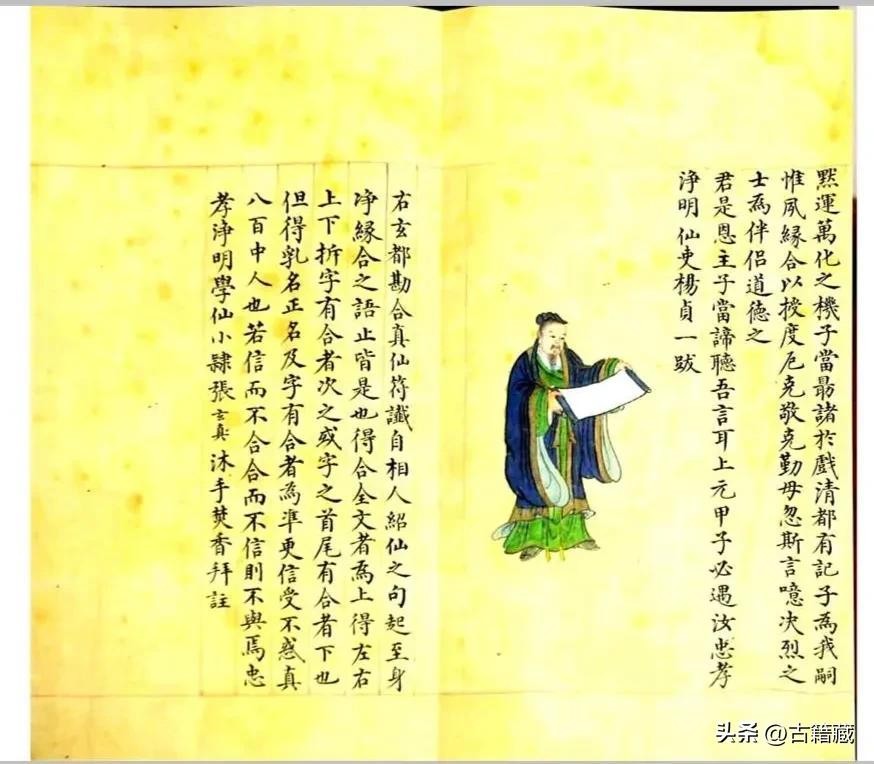 默運萬化之機子當勗諸於戲清都有記子為我嗣
惟夙緣合以授度厄克敬克勤毋忽斯言噫决烈之
士為伴侶道德之
君是恩主子當諦聽吾言耳上元甲子必遇汝忠孝
淨明仙吏楊貞一跋
右玄都勘合真仙符讖自相人紹仙之句起至身
净緣合之語止皆是也得合全文者為上得左右
上下拆字有合者次之或字之首尾有合者下也
但得乳名正名及字有合者為準更信受不惑真
八百中人也若信而不合合而不信則不與焉忠
孝淨明學仙小隸張玄真沐手焚香拜註
头条 @古籍藏